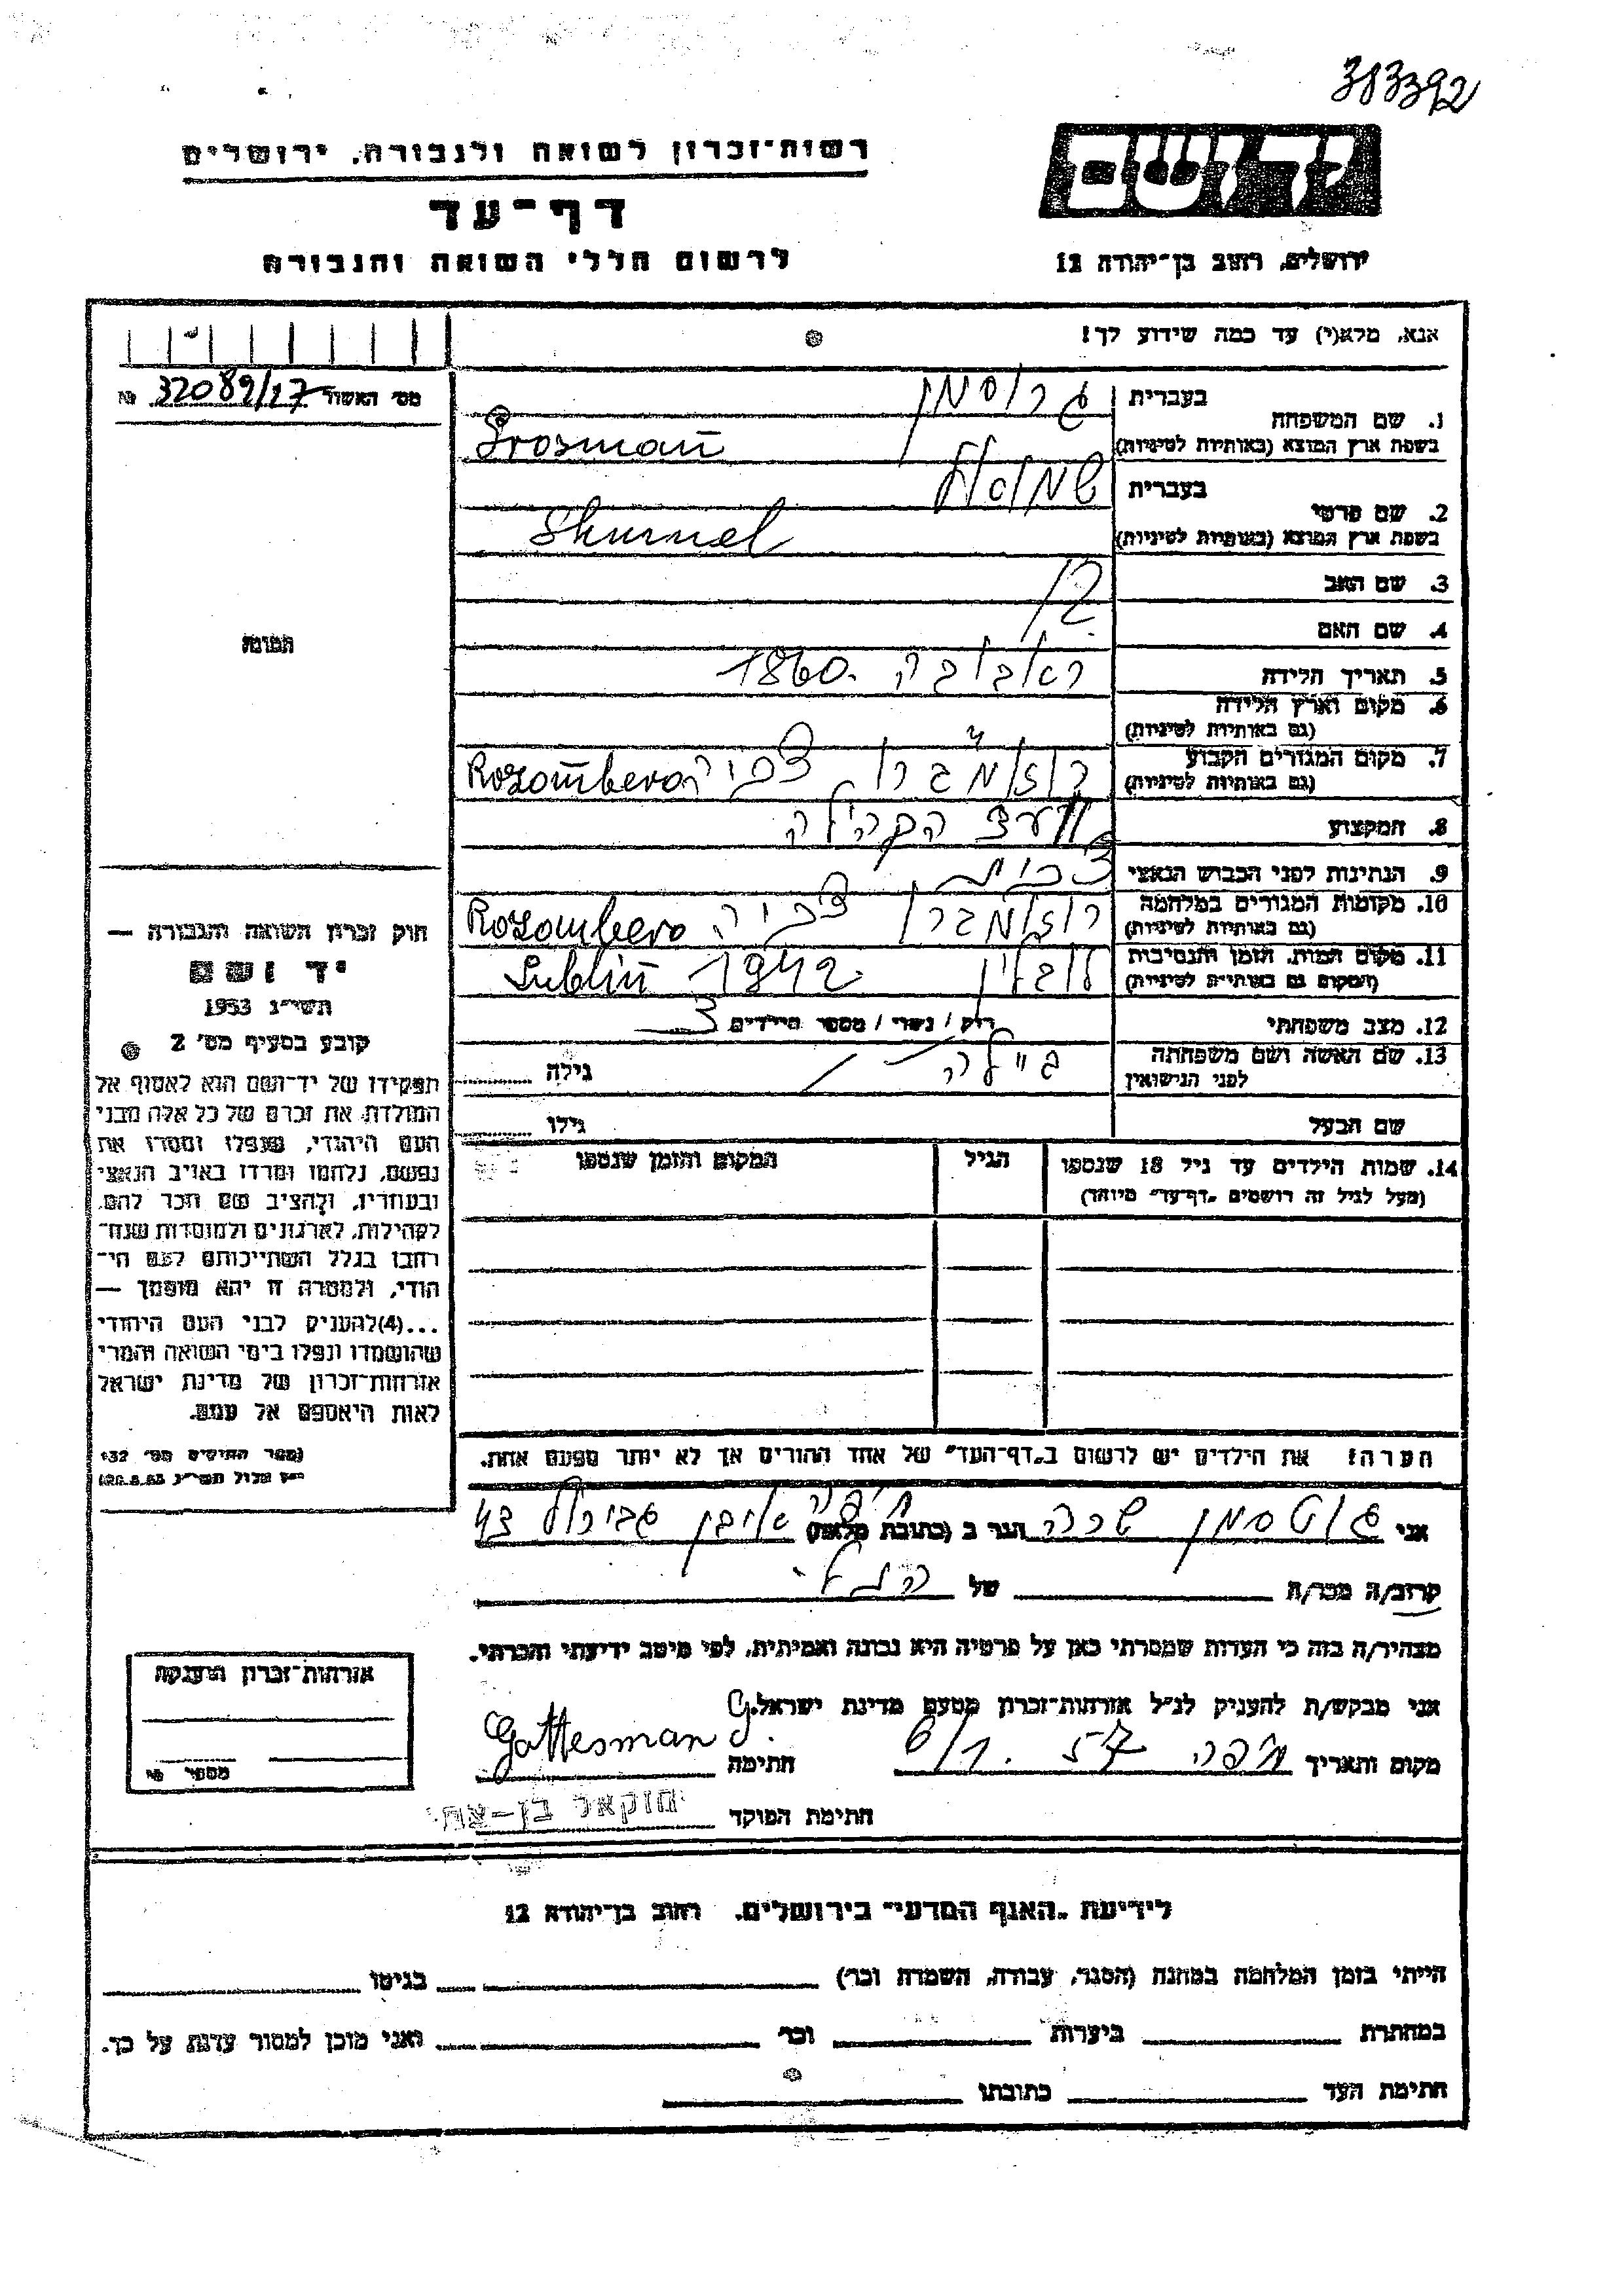 383392
רשות-זכרון לשואה ולגבורה, ירושלים
יד ושם
דף-עד
לרשום חללי השואה והגבורה
ירושלים, רחוב בן-יהודה 12
אנא, מלא(י) עד כמה שידוע לך!
מס' האשור 32089/27 №
1. שם המשפחה בעברית גרוסמן
בשפת ארץ המוצא (באותיות לטיניות) Grosman
2. שם פרטי בעברית
בשפת ארץ המוצא (באותיות לטיניות) Shumel
3. שם האב
4. שם האם
5. תאריך הלידה 1860
6. מקום וארץ הלידה
(גם באותיות לטיניות)
7. מקום המגורים הקבוע
(גם באותיות לטיניות) רוזמברו צכיה Rozombero
8. המקצוע הקהילה
9. הנתינות לפני הכבוש הנאצי צכית
10. מקומות המגורים במלחמה
(גם באותיות לטיניות) רוזמברו צכיה Rozombero
11. מקום המות, הזמן והנסיבות
(המקום גם באותיות לטיניות) לובלין 1942 Lublin
12. מצב משפחתי רוק / נשוי / מספר הילדים 3
13. שם האשה ושם משפחתה
לפני הנישואין גיילה גילה
שם הבעל גילו
14. שמות הילדים עד גיל 18 שנספו הגיל המקום והזמן שנספו
(מעל לגיל זה רושמים "דף-עד" מיוחד)
הערה! את הילדים יש לרשום ב"דף-העד" של אחד ההורים אך לא יותר מפעם אחת.
תמונה
חוק זכרון השואה והגבורה —
יד ושם
תשי"ג 1953
קובע בסעיף מס' 2
תפקידו של יד-ושם הוא לאסוף אל
המולדת את זכרם של כל אלה מבני
העם היהודי, שנפלו ומסרו את
נפשם, נלחמו ומרדו באויב הנאצי
ובעוזריו, ולהציב שם וזכר להם,
לקהילות, לארגונים ולמוסדות שנח-
רבו בגלל השתייכותם לעם הי-
הודי, ולמטרה זו יהא מוסמך —
...(4) להעניק לבני העם היהודי
שהושמדו ונפלו בימי השואה והמרי
אזרחות-זכרון של מדינת ישראל
לאות היאספם אל עמם.
(ספר החוקים מס' 132
אלול תשי"ג 28.8.53)
אני גוטסמן שרה הגר ב (כתובת מלאה) חיפה אבן גבירול 43
קרוב/ה מכר/ה של הנ"ל
מצהיר/ה בזה כי העדות שמסרתי כאן על פרטיה היא נכונה ואמיתית, לפי מיטב ידיעתי והכרתי.
אני מבקש/ת להעניק לנ"ל אזרחות-זכרון מטעם מדינת ישראל.
מקום ותאריך חיפה 6/1. 57 חתימה Gottesman
חתימת הפוקד
אזרחות-זכרון הוענקה
מספר №
לידיעת "האגף המדעי" בירושלים, רחוב בן-יהודה 12
הייתי בזמן המלחמה במחנה (הסגר, עבודה, השמדה וכו') בגיטו
במחתרת ביערות וכו' ואני מוכן למסור עדות על כך.
חתימת העד כתובתו